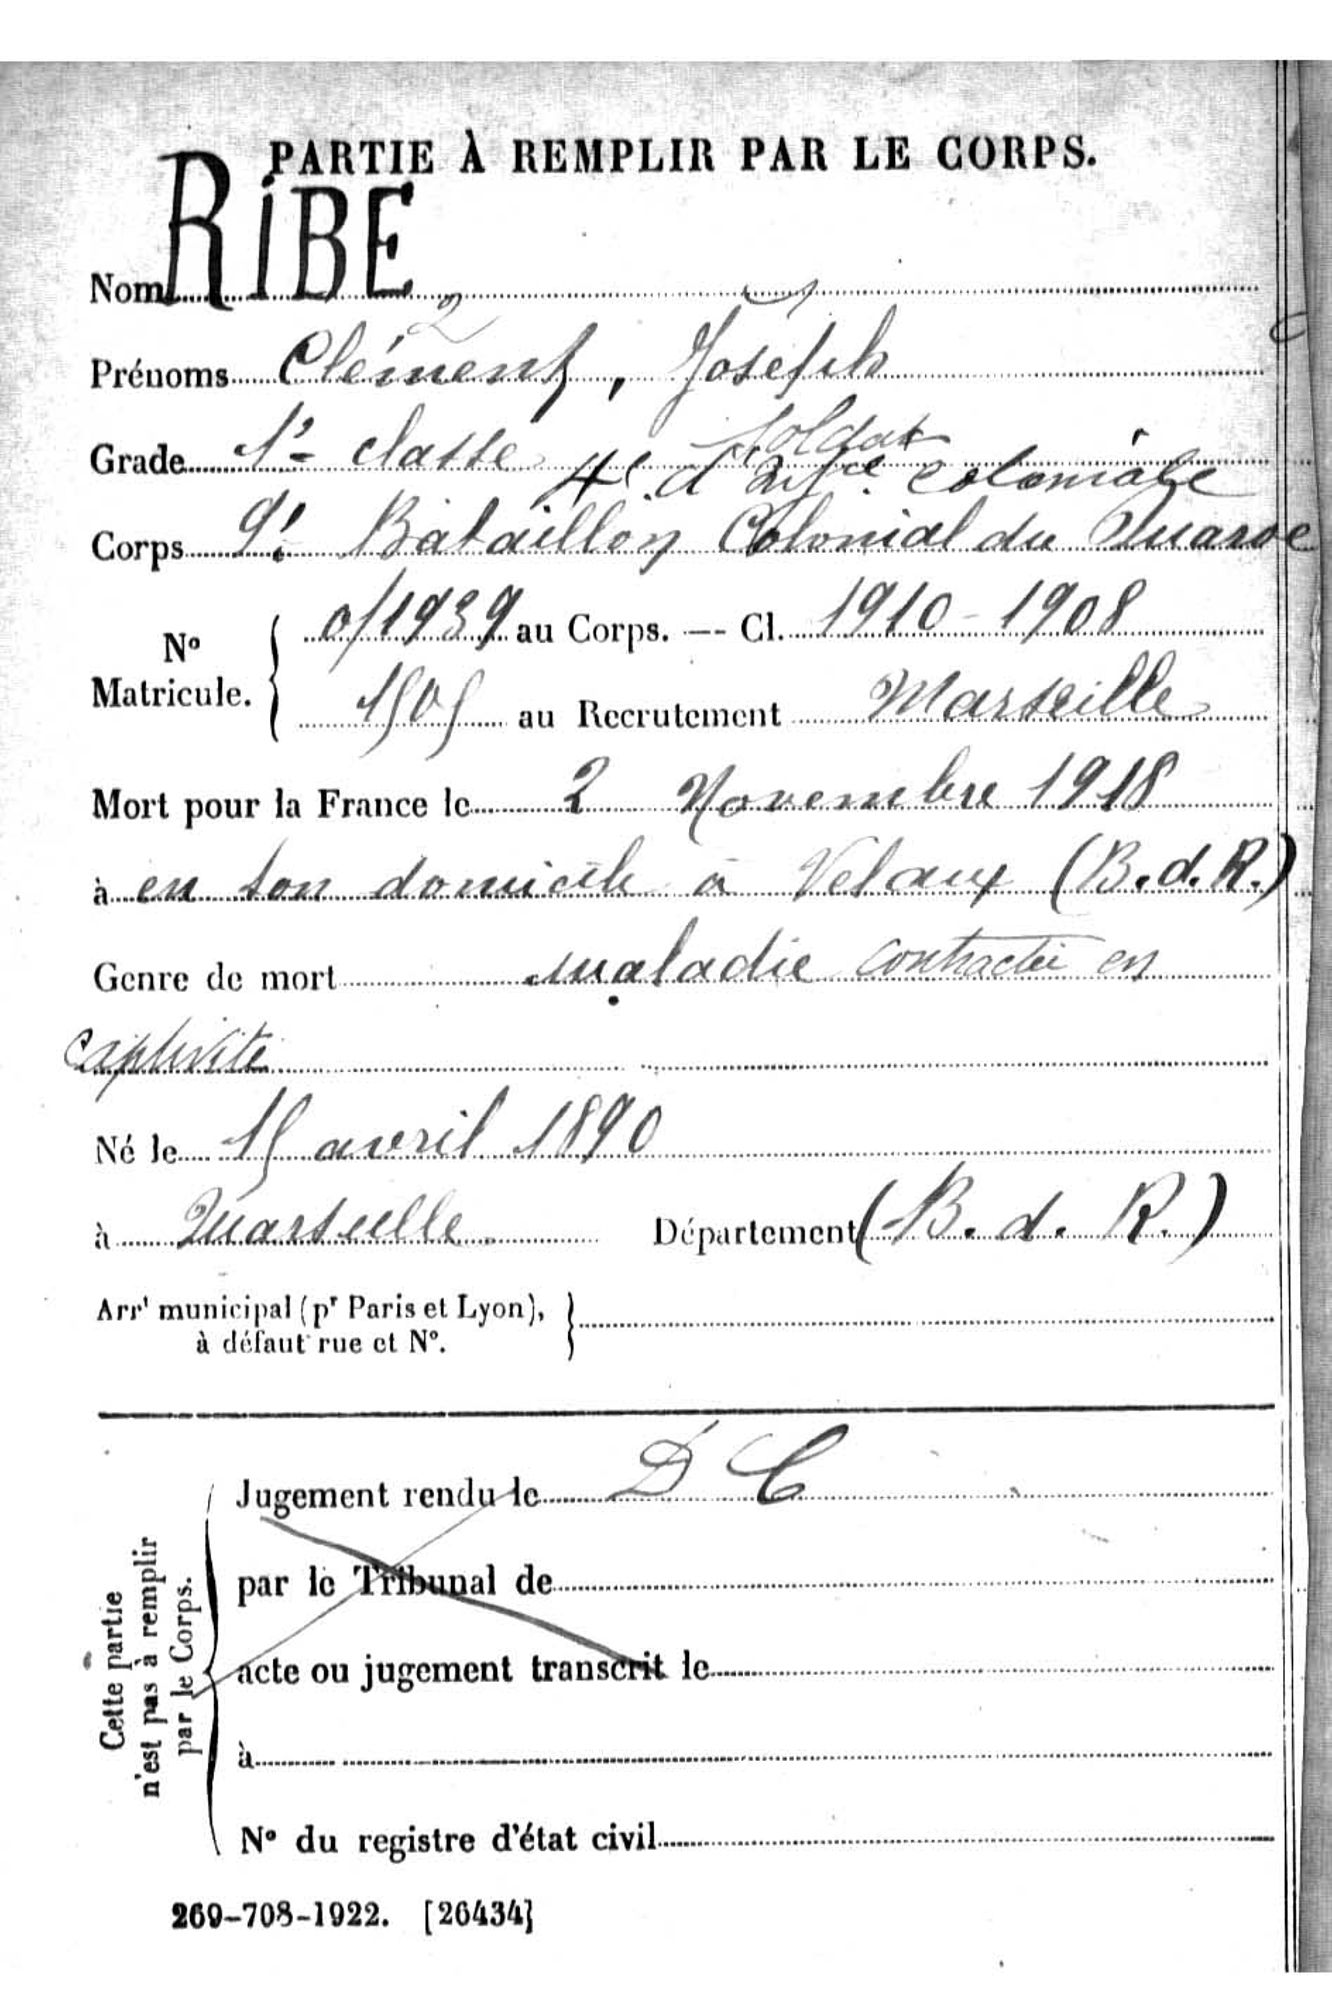 PARTIE À REMPLIR PAR LE CORPS.
Nom RIBE
2
Prénoms Clément, Joseph
Soldat
Grade 1re classe
4e d'Infie coloniale
Corps 9e Bataillon Colonial du Maroc
No Matricule. 0/1939 au Corps. — Cl. 1910-1908
1505 au Recrutement Marseille
Mort pour la France le 2 Novembre 1918
à en son domicile à Velaux (B.d.R.)
Genre de mort maladie contractée en
captivité
Né le 15 avril 1890
à Marseille. Département (B. d. R.)
Arrt municipal (pr Paris et Lyon),
à défaut rue et N°.
Cette partie
n'est pas à remplir
par le Corps.
Jugement rendu le D C
par le Tribunal de
acte ou jugement transcrit le
à
N° du registre d'état civil
269-708-1922. [26434]